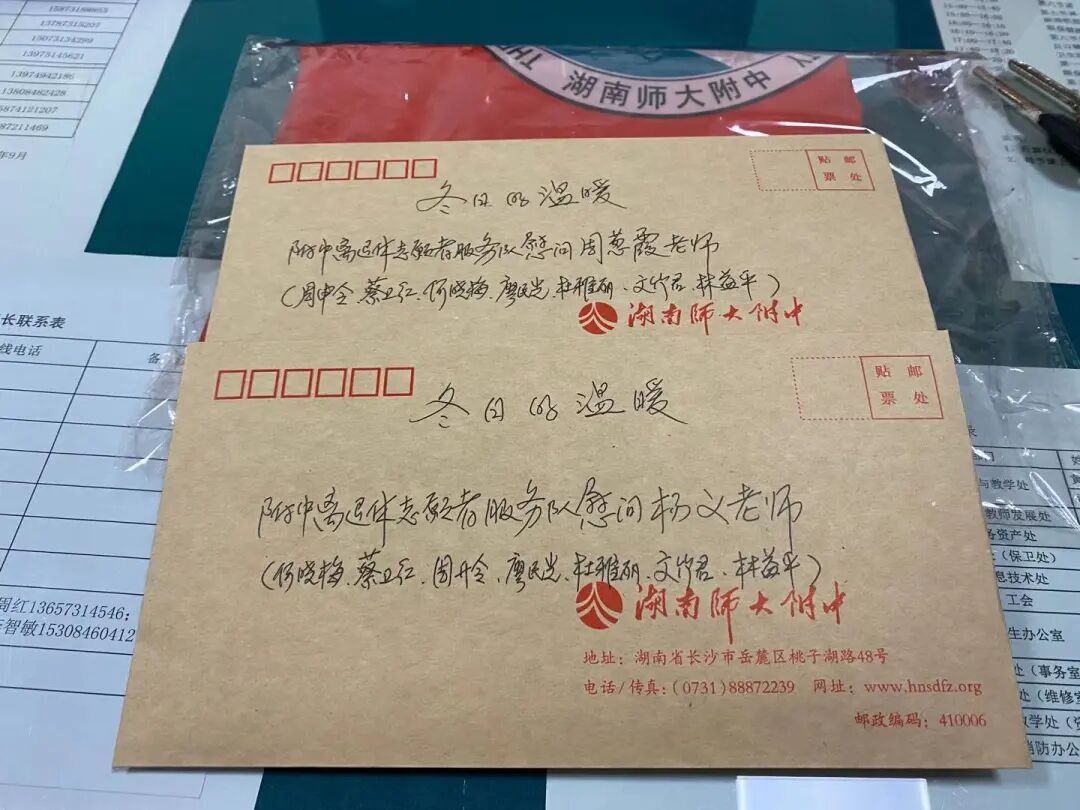 15873180853
13787315207
15073134299
13975145621
13974942186
13808482428
5874121207
87211469
年9月
湖南师大附中
贴 邮
票 处
冬日的温暖
附中离退休志愿者服务队慰问周葱霞老师
(周中令、蔡卫红、何晓梅、廖民岂、杜雅丽、文竹君、林益平)
湖南师大附中
贴 邮
票 处
冬日的温暖
附中离退休志愿者服务队慰问杨义老师
(何晓梅、蔡卫红、周丹令、廖民岂、杜雅丽、文竹君、林益平)
湖南师大附中
地址：湖南省长沙市岳麓区桃子湖路48号
电话/传真：(0731)88872239 网址：www.hnsdfz.org
邮政编码：410006
长联系表
线电话
备
周红13657314546;
智敏15308460412
录
与教学处
教师发展处
务资产处
(保卫处)
息技术处
工会
生办公室
处(事务室
处(维修室
教学处(资
消防办公